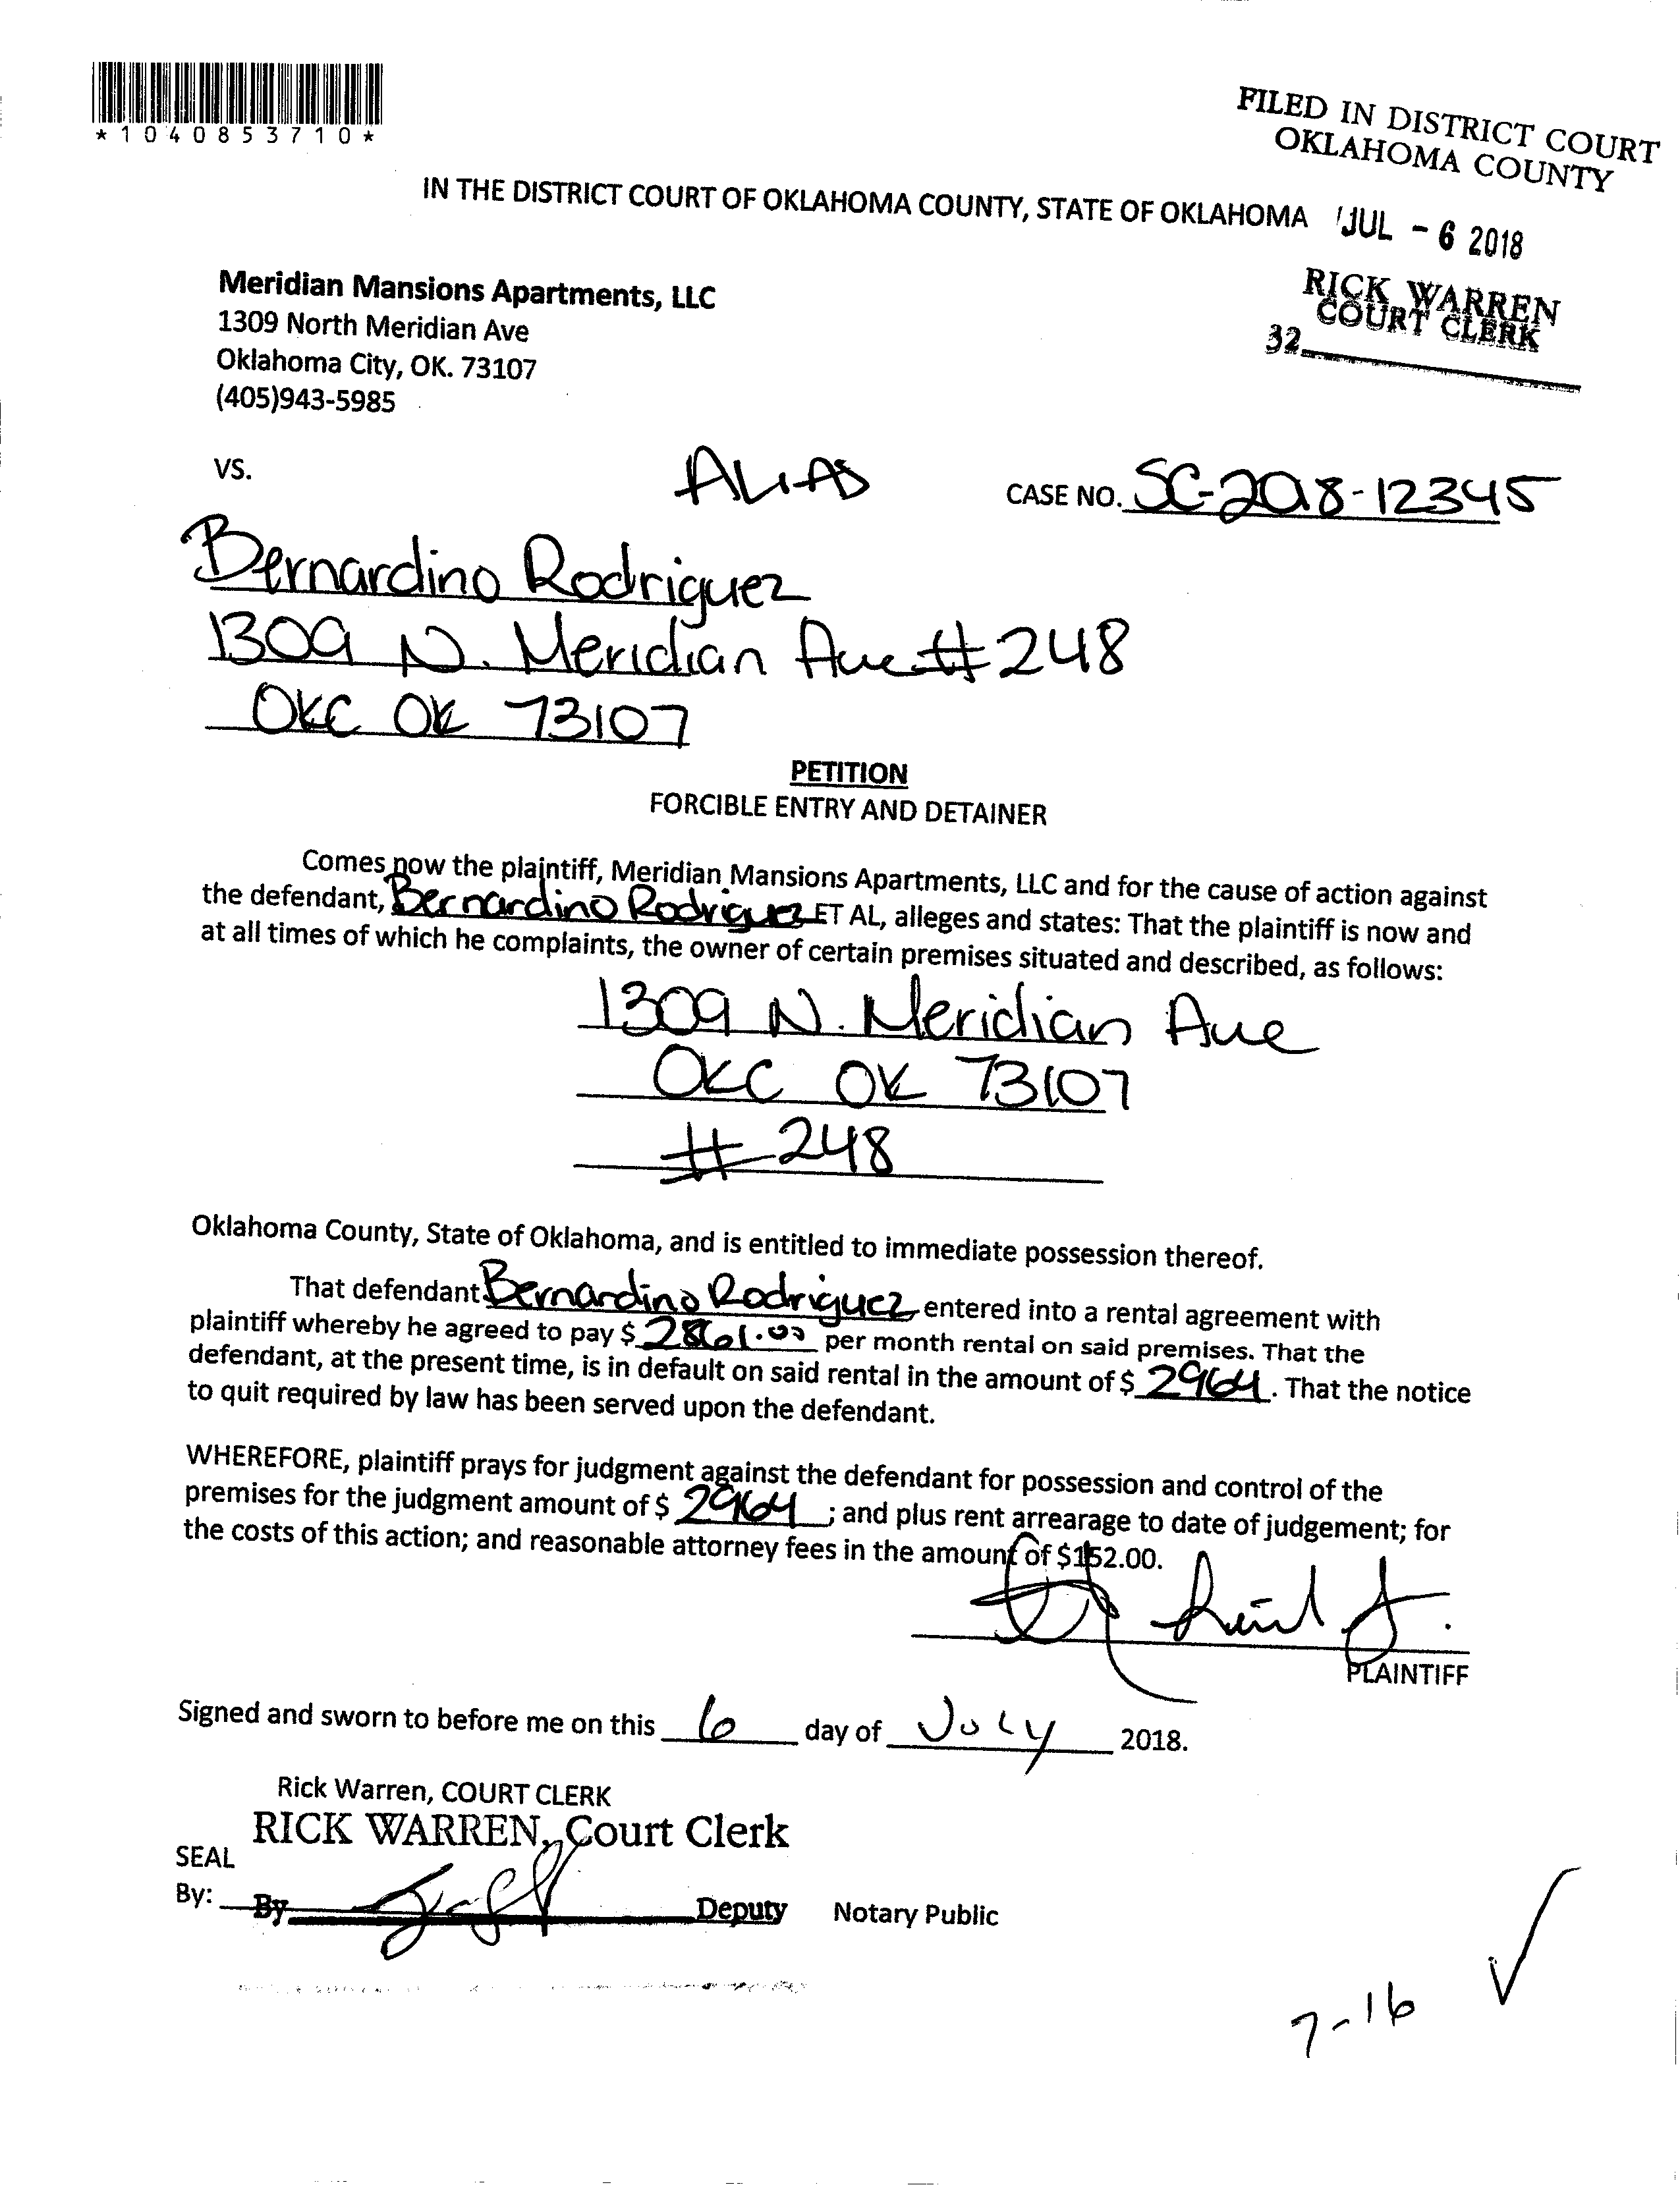 *1040853710*
FILED IN DISTRICT COURT
OKLAHOMA COUNTY
IN THE DISTRICT COURT OF OKLAHOMA COUNTY, STATE OF OKLAHOMA
JUL - 6 2018
RICK WARREN
COURT CLERK
32
Meridian Mansions Apartments, LLC
1309 North Meridian Ave
Oklahoma City, OK. 73107
(405)943-5985
VS.
ALIAS
CASE NO. SC-2018-12345
Bernardino Rodriguez
1309 N. Meridian Ave # 248
OKC OK 73107
PETITION
FORCIBLE ENTRY AND DETAINER
Comes now the plaintiff, Meridian Mansions Apartments, LLC and for the cause of action against
the defendant, Bernardino Rodriguez ET AL, alleges and states: That the plaintiff is now and
at all times of which he complaints, the owner of certain premises situated and described, as follows:
1309 N. Meridian Ave
OKC OK 73107
# 248
Oklahoma County, State of Oklahoma, and is entitled to immediate possession thereof.
That defendant Bernardino Rodriguez entered into a rental agreement with
plaintiff whereby he agreed to pay $ 2861.00 per month rental on said premises. That the
defendant, at the present time, is in default on said rental in the amount of $ 2964. That the notice
to quit required by law has been served upon the defendant.
WHEREFORE, plaintiff prays for judgment against the defendant for possession and control of the
premises for the judgment amount of $ 2964 ; and plus rent arrearage to date of judgement; for
the costs of this action; and reasonable attorney fees in the amount of $152.00.
PLAINTIFF
Signed and sworn to before me on this 6 day of July 2018.
Rick Warren, COURT CLERK
RICK WARREN, Court Clerk
SEAL
By: By Deputy Notary Public
7-16